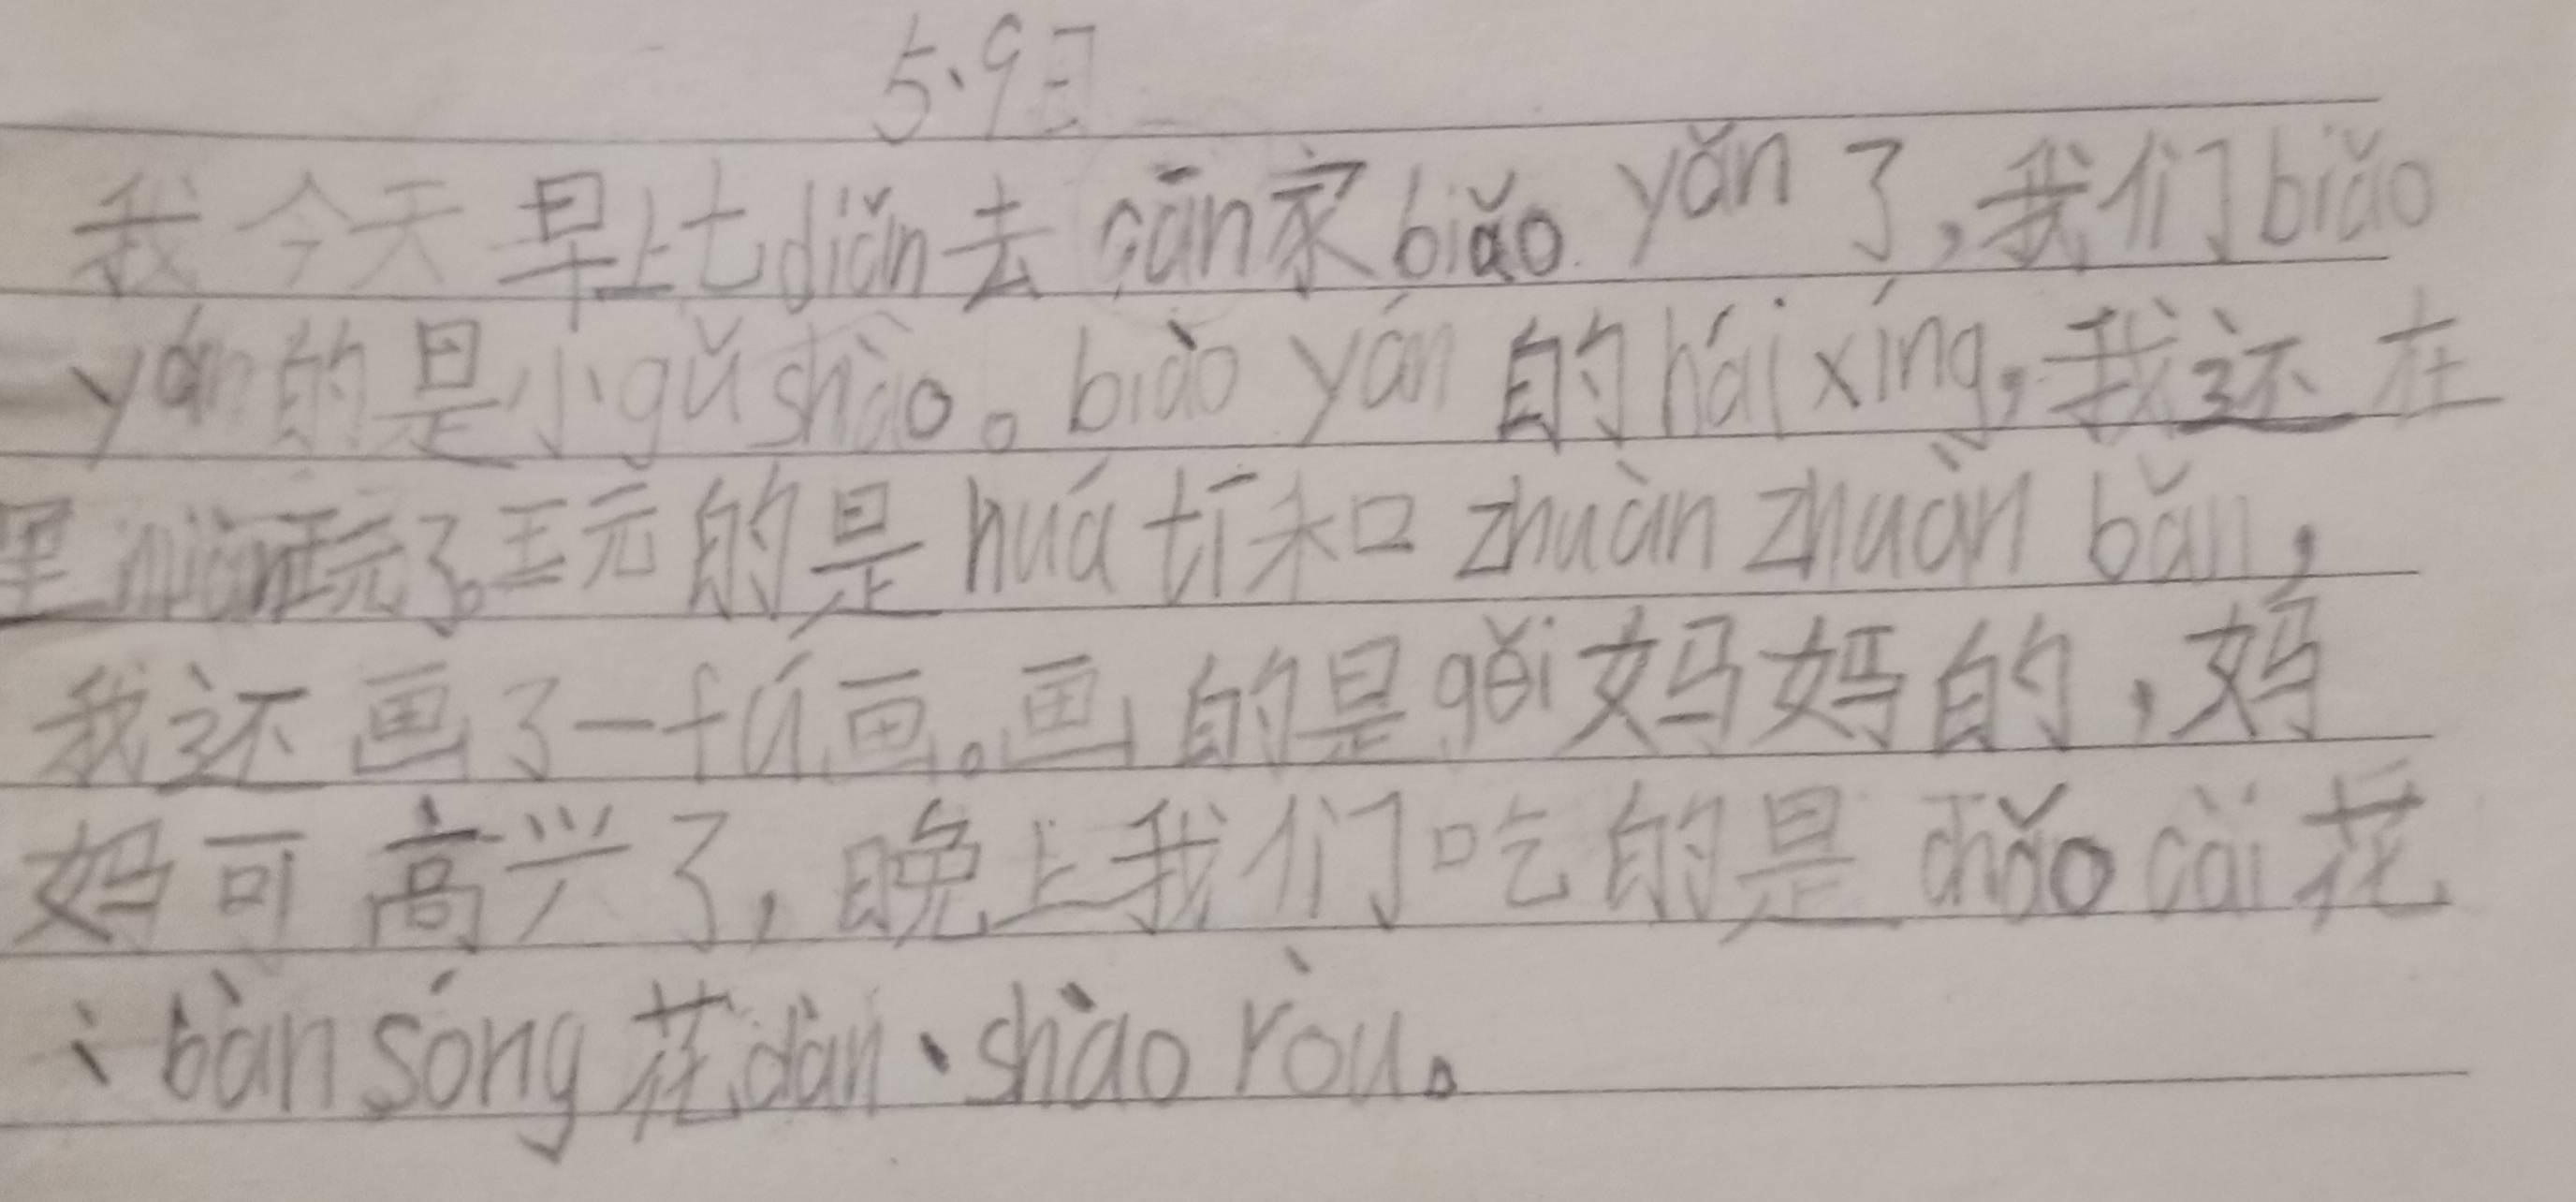 5.9日
我今天早上七diǎn去cān家biǎo yǎn了,我们biǎo
yán的是小gǔ shào。biào yán的hái xíng,我还在
里miàn玩了。玩的是huá tī和zhuàn zhuàn bǎn,
我还画了一fú画。画的是gěi妈妈的,妈
妈可高兴了,晚上我们吃的是chǎo cài花
、bàn sóng花dàn、shào ròu。